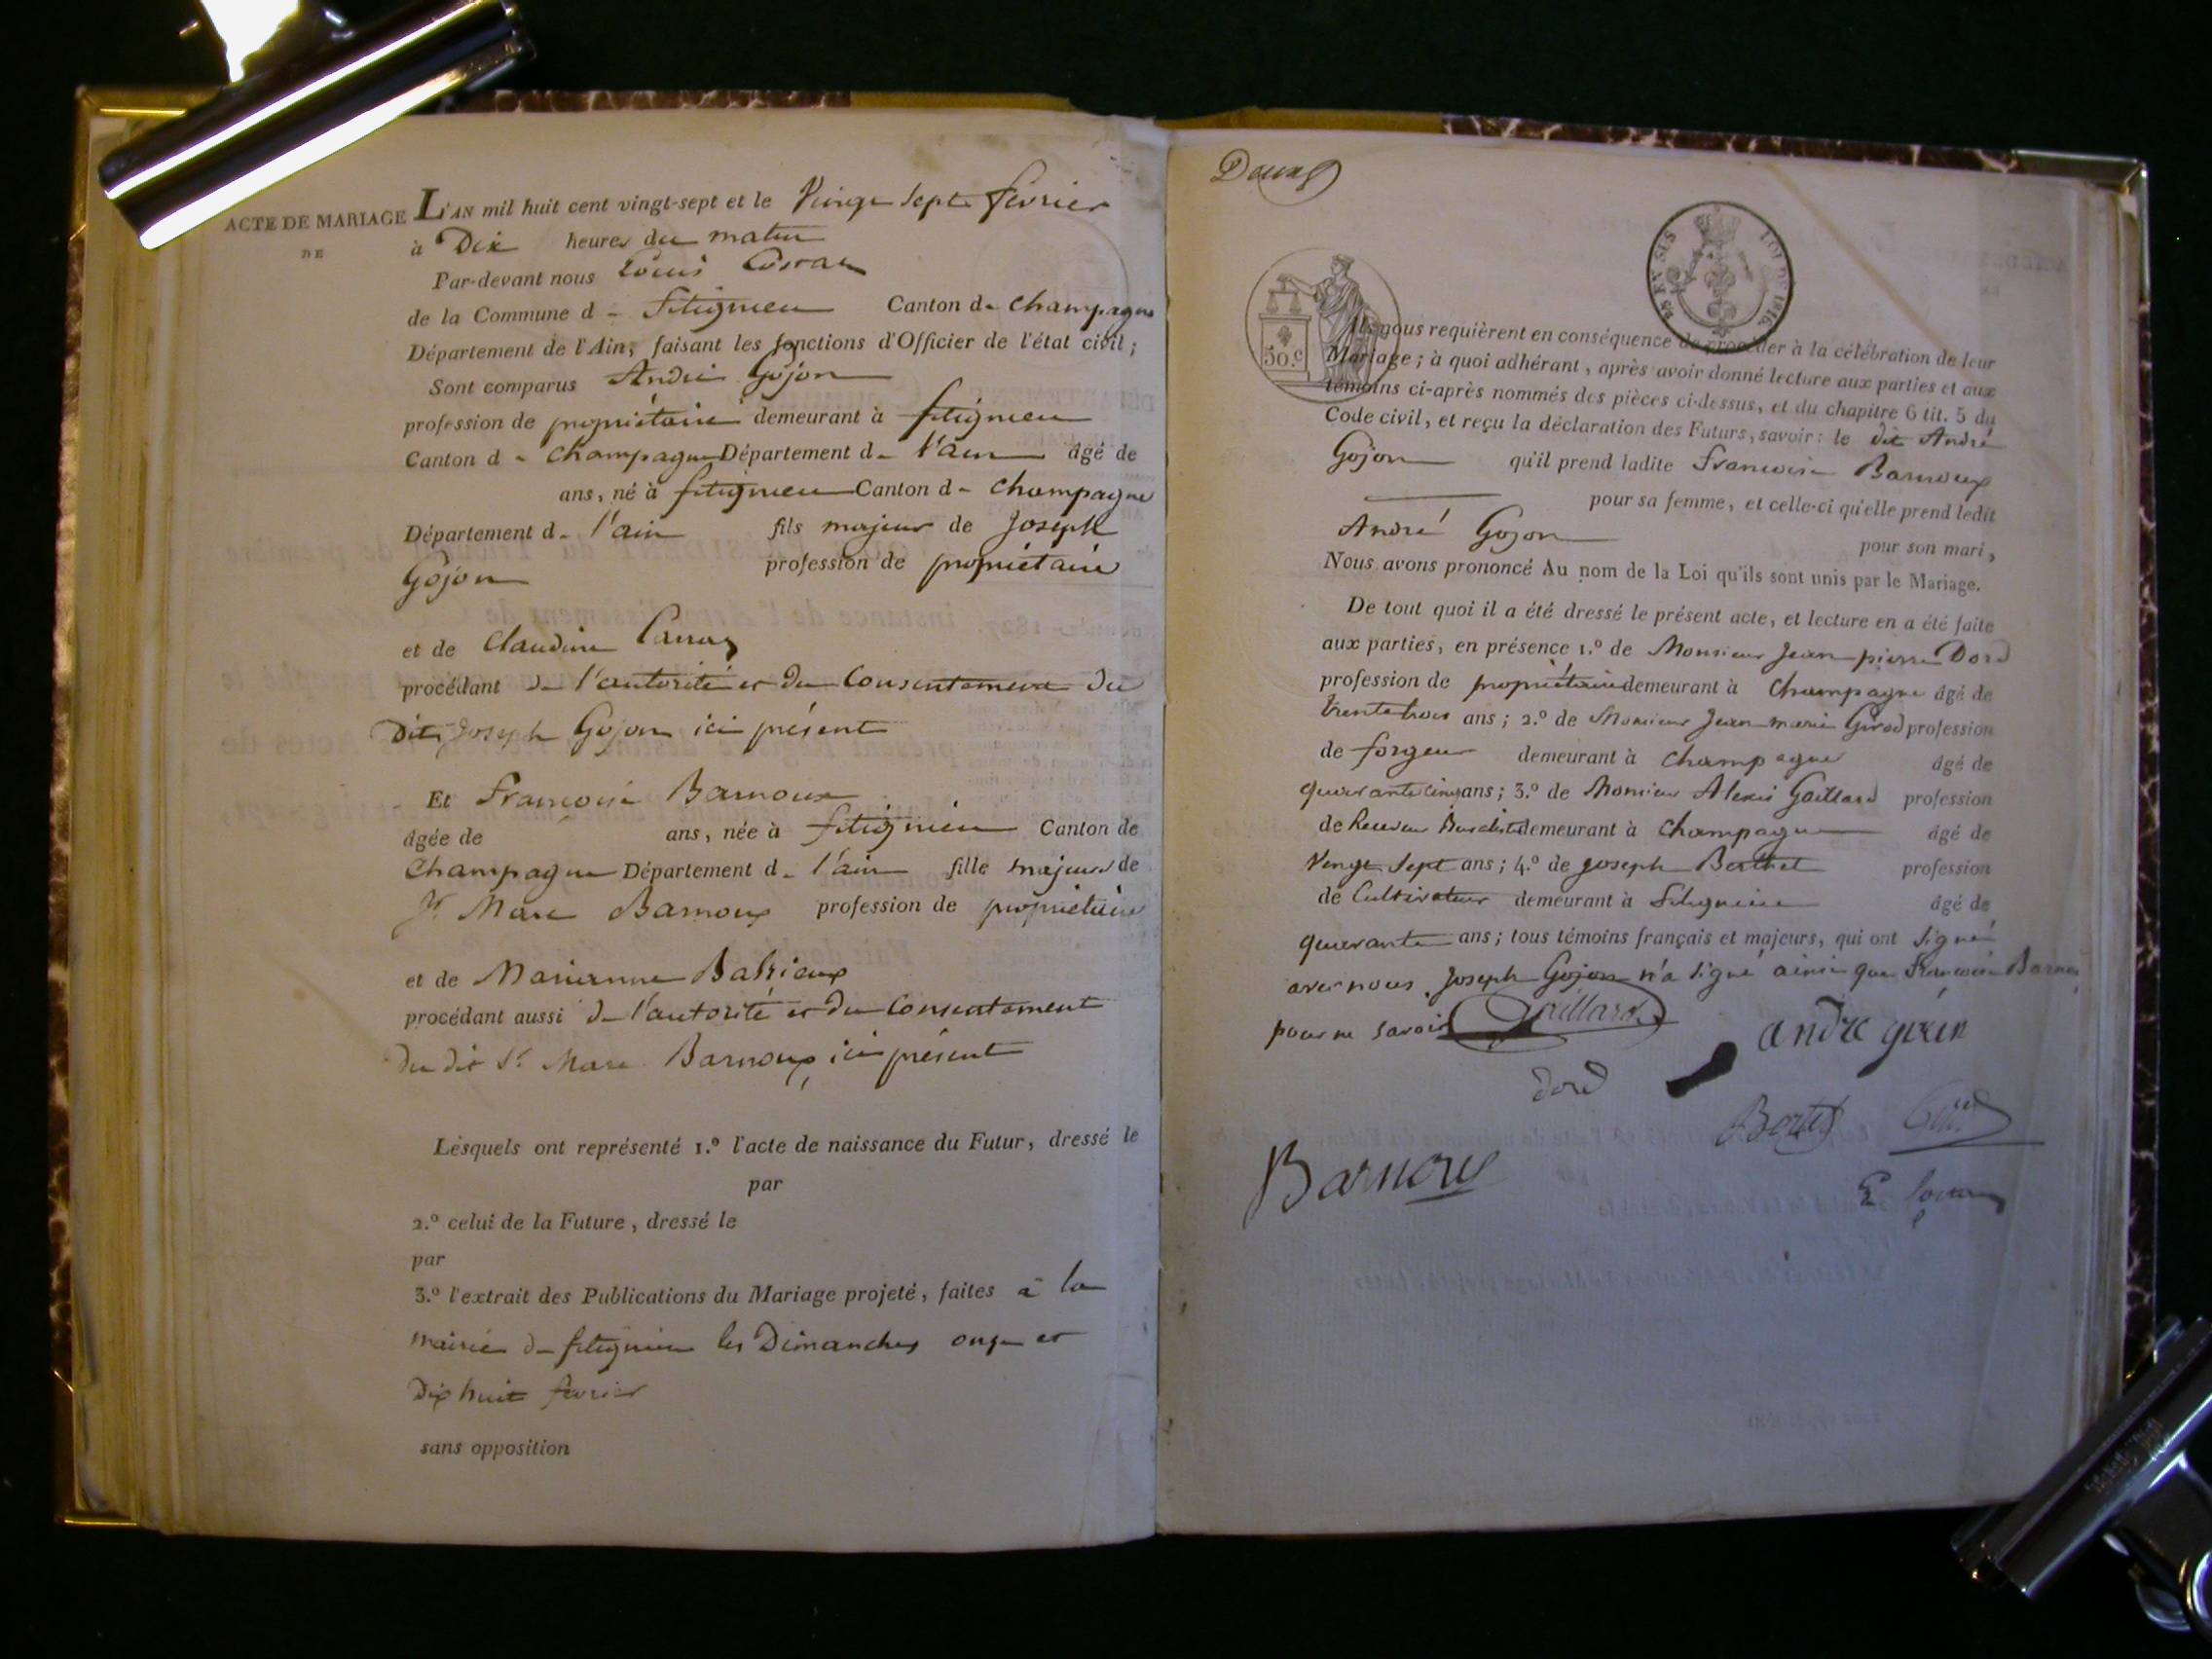 ACTE DE MARIAGE
DE
L'AN mil huit cent vingt-sept et le Vingt Sept fevrier
à Dix heures du matin
Par-devant nous Louis
de la Commune d - fitignieu Canton de Champagne
Département de l'Ain, faisant les fonctions d'Officier de l'état civil;
Sont comparus André Gojon
profession de propriétaire demeurant à fitignieu
Canton d - Champagne Département de l'ain âgé de
ans, né à fitignieu Canton de Champagne
Département de l'ain fils majeur de Joseph
Gojon profession de propriétaire
et de Claudine
procédant de l'autorité et du Consentement du
Dit Joseph Gojon ici présent
Et Francoise Barnoux
âgée de ans, née à fitignieu Canton de
Champagne Département de l'ain fille majeure de
Marc Barnoux profession de propriétaire
et de Marianne
procédant aussi de l'autorité et du Consentement
du dit Sr. Marc Barnoux, ici présent
Lesquels ont représenté 1.º l'acte de naissance du Futur, dressé le
par
2.º celui de la Future, dressé le
par
3.º l'extrait des Publications du Mariage projeté, faites à la
mairie de fitignieu les Dimanches onze et
Dix huit fevrier
sans opposition
LOI DE 1816.
50.c
Ils nous requièrent en conséquence de procéder à la célébration de leur
Mariage; à quoi adhérant, après avoir donné lecture aux parties et aux
témoins ci-après nommés des pièces ci-dessus, et du chapitre 6 tit. 5 du
Code civil, et reçu la déclaration des Futurs, savoir: le dit André
Gojon qu'il prend ladite Francoise Barnoux
pour sa femme, et celle-ci qu'elle prend ledit
André Gojon pour son mari,
Nous avons prononcé Au nom de la Loi qu'ils sont unis par le Mariage.
De tout quoi il a été dressé le présent acte, et lecture en a été faite
aux parties, en présence 1.º de Monsieur Jean pierre Dord
profession de propriétaire demeurant à Champagne âgé de
trente trois ans; 2.º de Monsieur Jean marie Girod profession
de forgeur demeurant à Champagne âgé de
quarante cinq ans; 3.º de Monsieur Alexis Gaillard profession
de Receveur demeurant à Champagne âgé de
Vingt Sept ans; 4.º de Joseph Berthet profession
de Cultivateur demeurant à fitignieu âgé de
quarante ans; tous témoins français et majeurs, qui ont signé
avec nous. Joseph Gojon n'a signé ainsi que Francoise Barnoux
pour ne savoir
Gaillard
andre
Dord
Barnoux